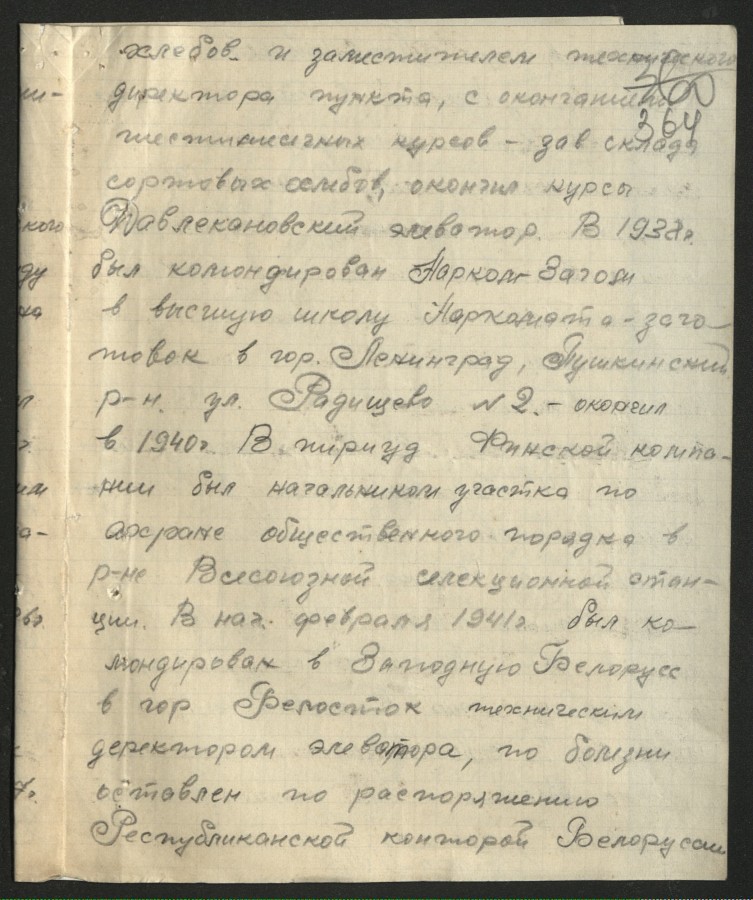 хлебов. и заместителем технического
директора пункта, с окончанием
шестимесячных курсов – зав склада
364
сортовых хлебов, окончил курсы
Давлекановский элеватор. В 1938г.
был командирован Нарком-Загом
в высшую школу Наркомата-заго-
товок в гор. Ленинград, Пушкинский
р-н. ул. Радищево №2. – окончил
в 1940г. В пириуд Финской компа-
нии был начальником участка по
ахране общественного порядка в
р-не Всесоюзной селекционной стан-
ции. В нач. февраля 1941г. был ко-
мондирован в Западную Белорусс
в гор Белосток техническим
деректором элеватора, по болезни
оставлен по распоряжению
Республиканской конторой Белоруссии